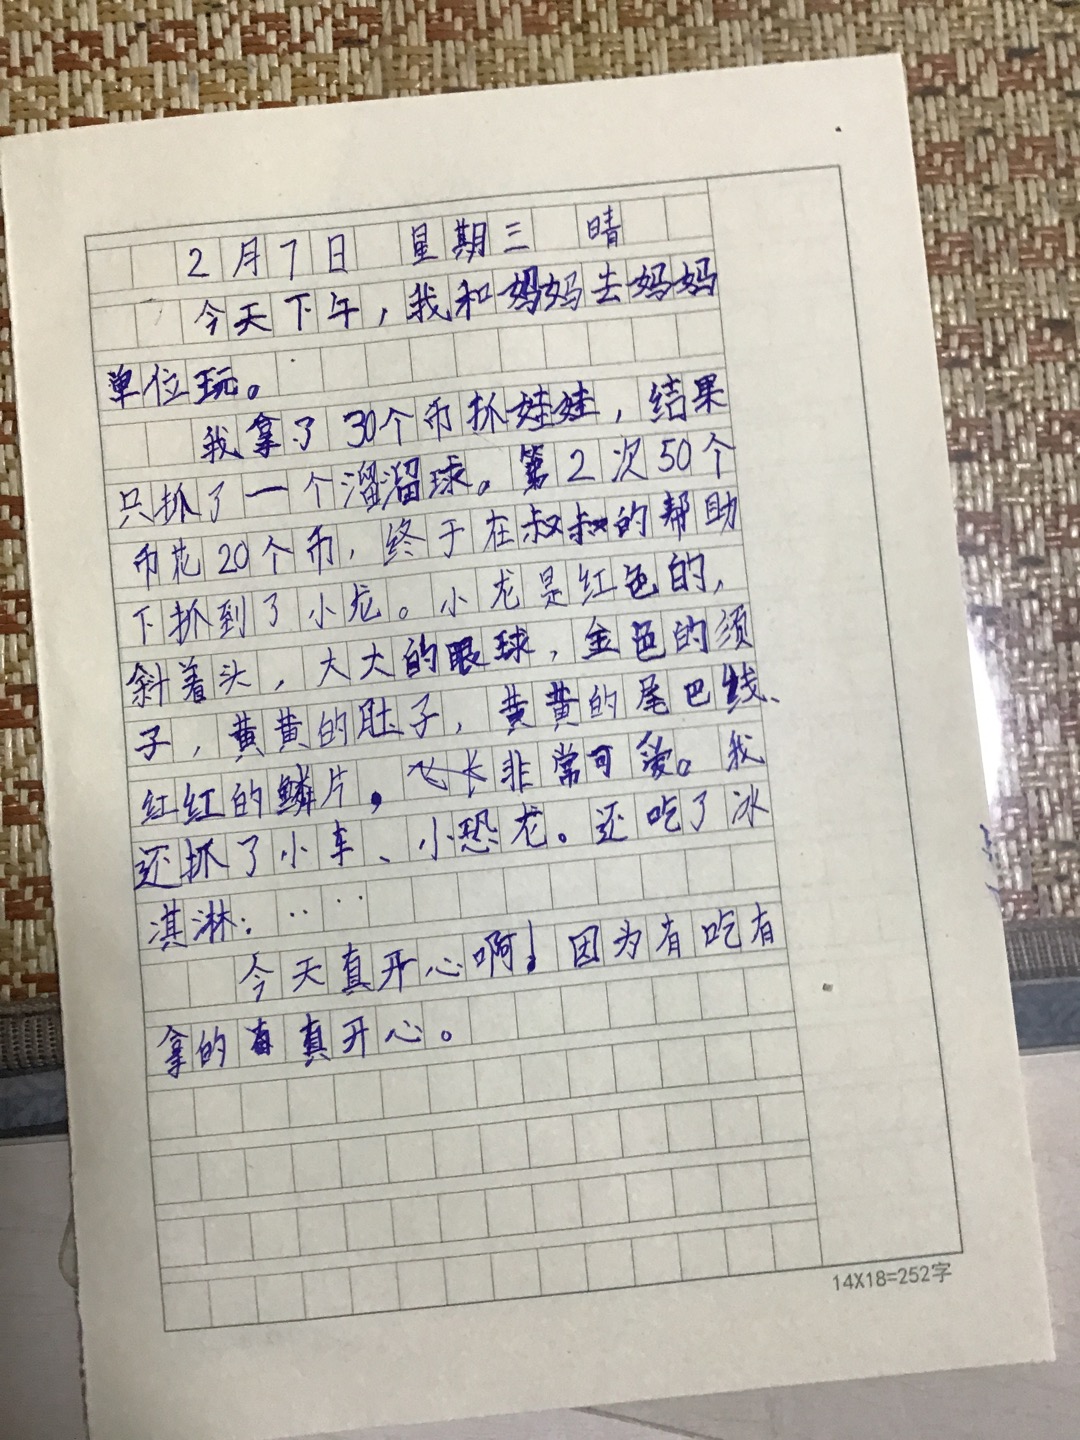 2月7日 星期三 晴
今天下午，我和妈妈去妈妈
单位玩。
我拿了30个币抓娃娃，结果
只抓了一个溜溜球。第2次50个
币花20个币，终于在叔叔的帮助
下抓到了小龙。小龙是红色的，
斜着头，大大的眼球，金色的须
子，黄黄的肚子，黄黄的尾巴线、
红红的鳞片，飞长非常可爱。我
还抓了小车、小恐龙。还吃了冰
淇淋：····
今天真开心啊！因为有吃有
拿的 真开心。
14X18=252字